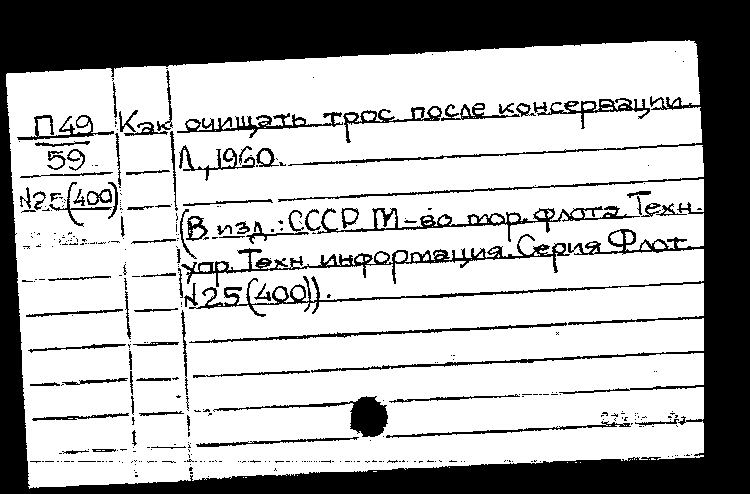 П49 Как очищать трос после консервации.
59 Л., 1960.
№25(400)
(В изд.: СССР М-во мор. флота. Техн.
упр. Техн. информация. Серия Флот.
№25(400)).